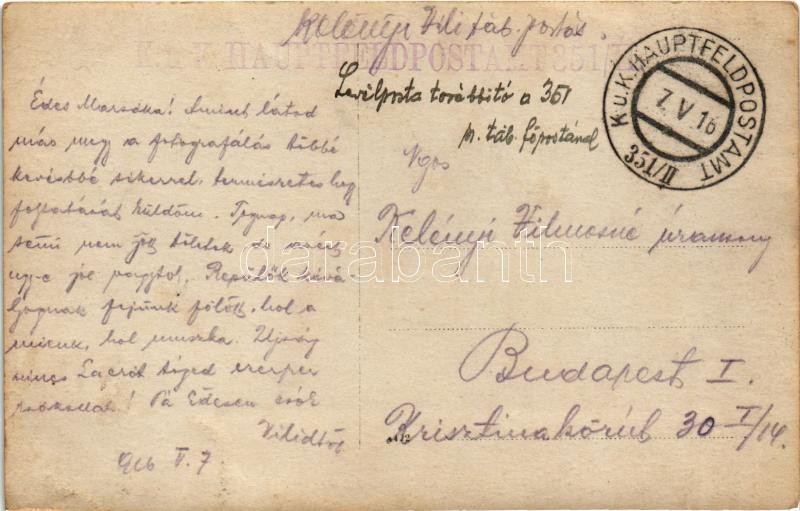 Kelényi Vili táb. postás
K.u.K. HAUPTFELDPOSTAMT 351/II
Levélposta továbbító a 351
m. táb. főpostánál
K.u.K. HAUPTFELDPOSTAMT
7. V 16
351/II
Édes Marsóka! Amint látod
már megy a fotografálás többé
kevésbbé sikerrel, természetes hogy
folytatását küldöm. Tegnap, ma
semmi nem jött tőletek de azért
ugy-e jól vagytok. Repülők
fejünk fölött, hol a
mienk, hol muszka. Ujság
nincs Laciról ezerszer
csókollak! Pá Édesem csók
Vilidtől
916 V. 7.
Ngos
Kelényi Vilmosné úrasszony
Budapest I.
Krisztinakörút 30 I/14.
darabanth